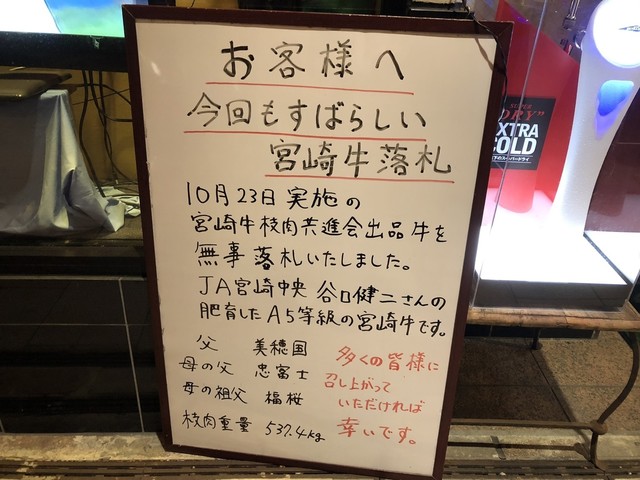 お客様へ
今回もすばらしい
宮崎牛落札
10月23日実施の
宮崎牛枝肉共進会出品牛を
無事落札いたしました。
JA宮崎中央 谷口健二さんの
肥育したA5等級の宮崎牛です。
父 美穂国
母の父 忠富士
母の祖父 福桜
枝肉重量 537.4kg
多くの皆様に
召し上がって
いただければ
幸いです。
SUPER
"DRY"
EXTRA
COLD